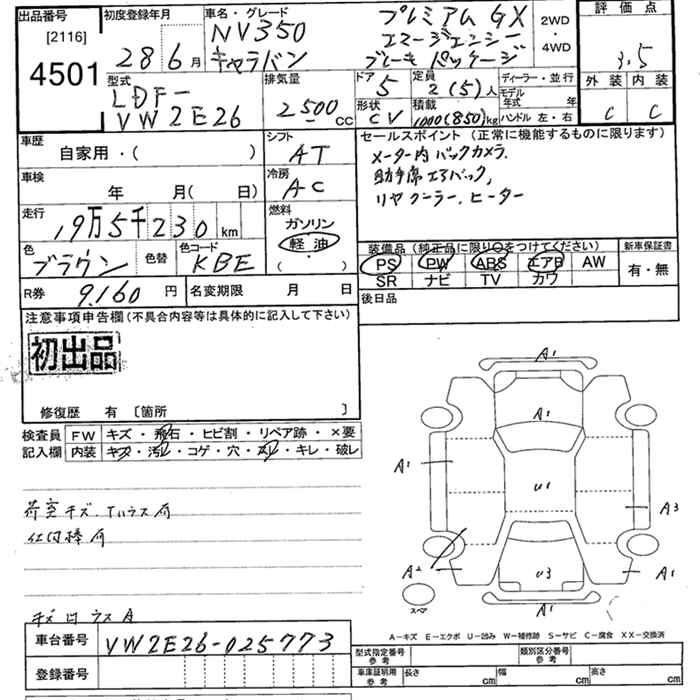 出品番号
[2116]
4501
初度登録年月
28 6 月
車名・グレード
NV350
キャラバン
プレミアムGX
エマージェンシー
ブレーキパッケージ
2WD
・
4WD
評価点
3.5
外装 内装
C C
型式
LDF-
VW2E26
排気量
2500 CC
ドア
5
定員
2(5)人
ディーラー・並行
モデル
年式 年
形状
CV
積載
1000(850)kg
ハンドル 左・右
車歴
自家用・( )
シフト
AT
車検
年 月( 日)
冷房
AC
走行
19万5千230 km
燃料
ガソリン
軽油
( )
色
ブラウン
色替
色コード
KBE
R券
9,160 円
名変期限 月 日
セールスポイント(正常に機能するものに限ります)
メーター内バックカメラ.
助手席エアバック,
リヤクーラー.ヒーター
装備品(純正品に限り○をつけてください)
PS PW ABS エアB AW
SR ナビ TV カワ
新車保証書
有・無
後日品
注意事項申告欄(不具合内容等は具体的に記入して下さい)
初出品
修復歴 有 〔箇所 〕
検査員
記入欄
FW キズ・飛石・ヒビ割・リペア跡・×要
内装 キズ・汚レ・コゲ・穴・スレ・キレ・破レ
荷室キズ.
A1
A1
A1
U1
A3
A2
U3
A1
A1
スペア
A-キズ E-エクボ U-凹み W-補修跡 S-サビ C-腐食 XX-交換済
車台番号
VW2E26-025773
登録番号
型式指定番号
参考
類別区分番号
参考
車庫証明用
参考
長さ cm
幅 cm
高さ cm